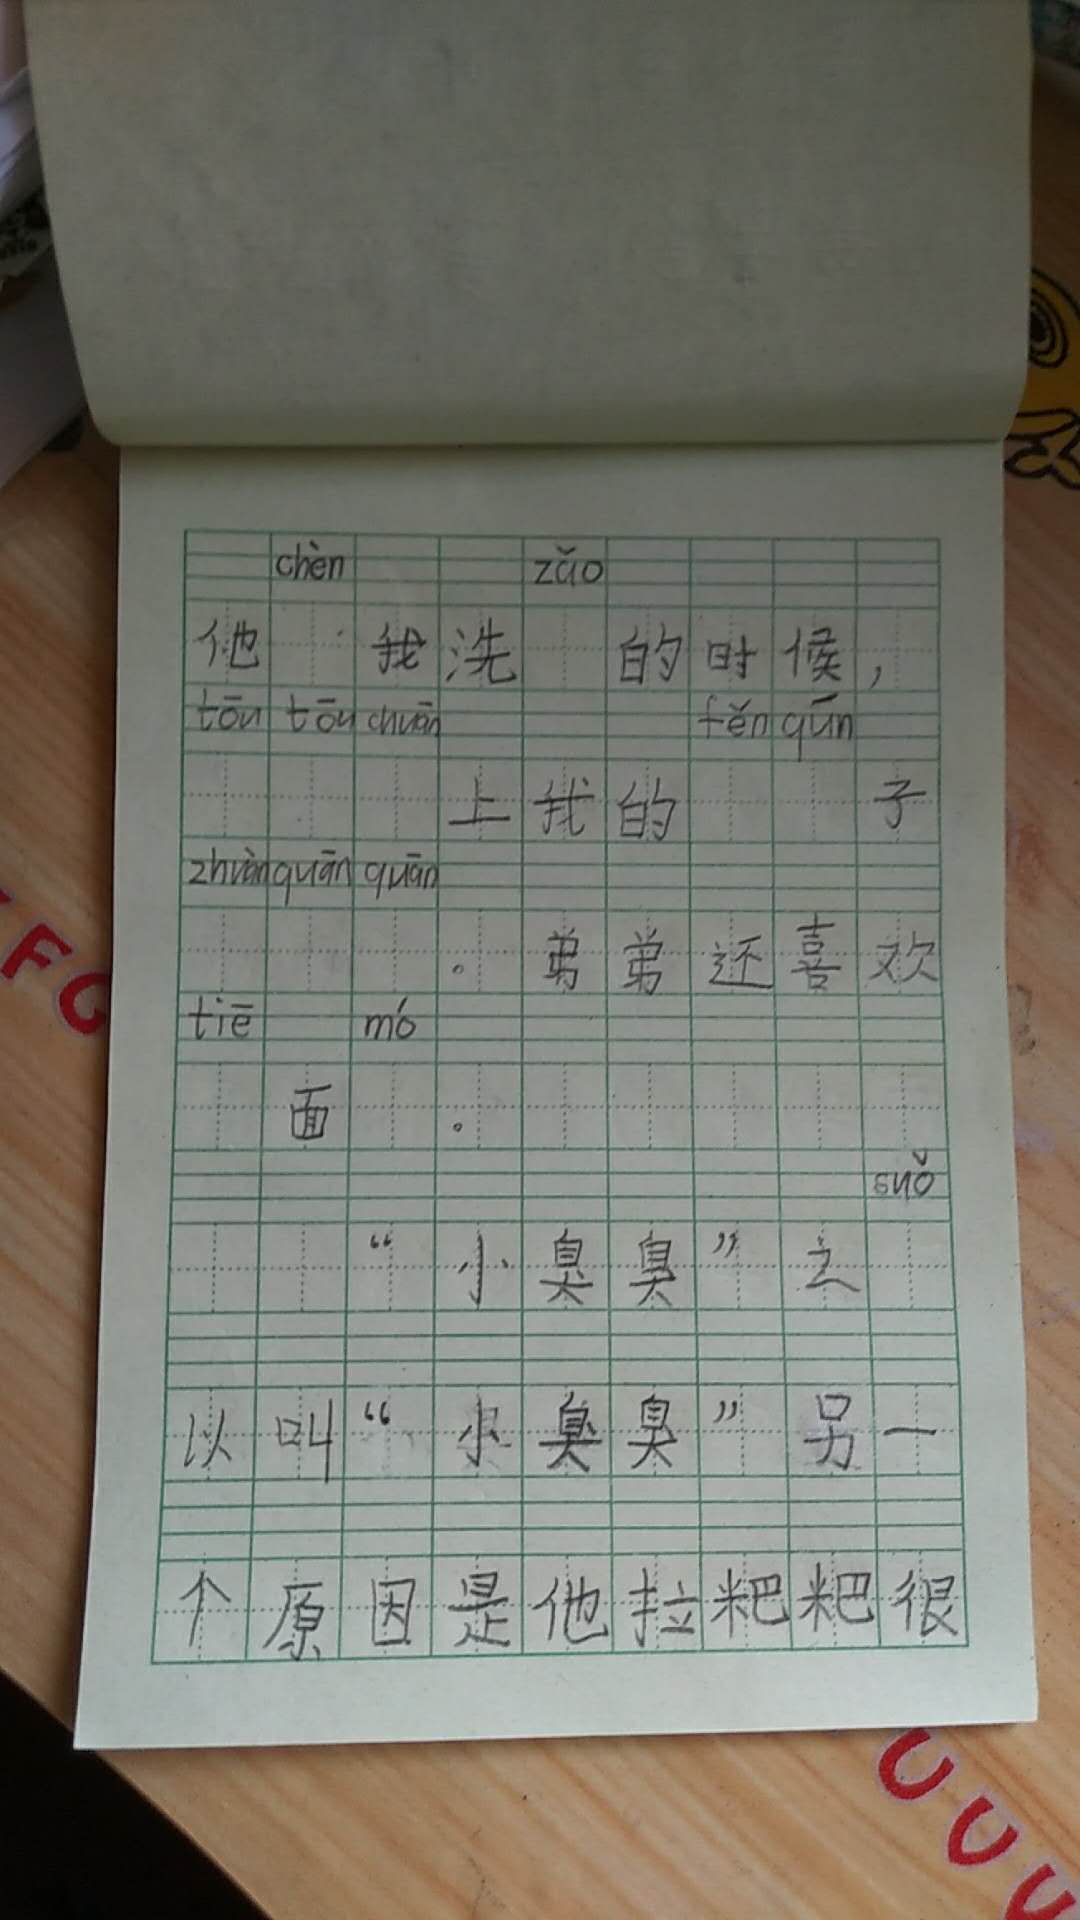 chèn zǎo
他 我洗 的时候，
tōu tōu chuān fěn qún
上我的 子
zhuàn quān quān
。弟弟还喜欢
tiē mó
面 。
suǒ
“小臭臭”之
以叫“小臭臭”另一
个原因是他拉粑粑很